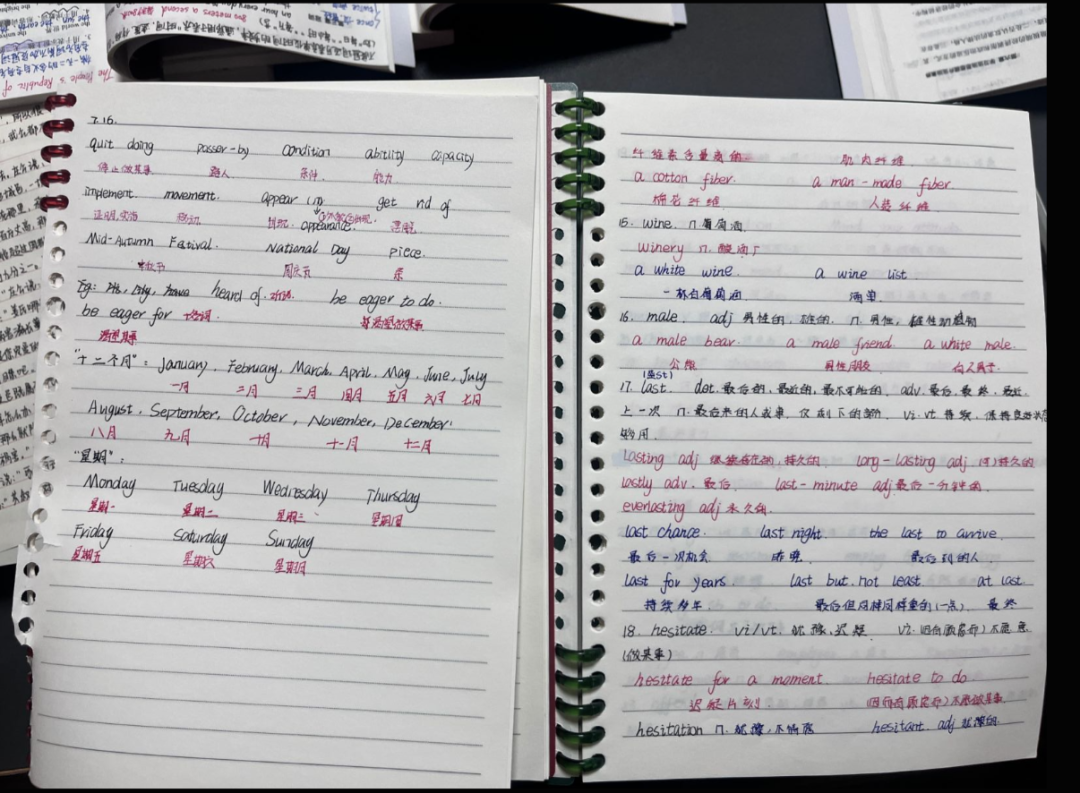 7.16.
quit doing passer-by condition ability capacity
停止做某事 路人 条件 能力
implement movement. appear (v) get rid of
移动 出现 appearance. 摆脱
Mid-Autumn Festival. National Day piece.
中秋节 国庆节
heard of. 听说 be eager to do.
be eager for
渴望某事 渴望做某事
"十二个月": January, February, March, April, May, June, July
一月 二月 三月 四月 五月 六月 七月
August, September, October, November, December.
八月 九月 十月 十一月 十二月
"星期":
Monday Tuesday Wednesday Thursday
星期一 星期二 星期三 星期四
Friday Saturday Sunday
星期五 星期六 星期日
纤维素含量高的 肌肉纤维
a cotton fiber. a man-made fiber.
棉花纤维 人造纤维
15. wine. n 葡萄酒
winery n. 酿酒厂
a white wine. a wine list
一杯白葡萄酒 酒单
16. male. adj 男性的, 雄的. n. 男性, 雄性动物
a male bear. a male friend. a white male.
公熊 男性朋友 白人男子
17. last. det. 最后的, 最近的, 最不可能的, adv. 最后, 最终, 最近
上一次 n. 最后来的人或事, 仅剩下的部分, vi. vt 持续, 保持良好状态
够用.
lasting adj 持久的 long-lasting adj 持久的
lastly adv. 最后. last-minute adj 最后一分钟的
everlasting adj 永久的
last chance. last night. the last to arrive.
最后一次机会 昨晚 最后到的人
last for years last but not least at last
持续多年 最后但同样重要的(一点) 最终
18. hesitate. vi/vt. 犹豫, 迟疑 vi. 不愿意
(做某事)
hesitate for a moment hesitate to do
迟疑片刻 不愿做某事
hesitation n. 犹豫, hesitant. adj 犹豫的